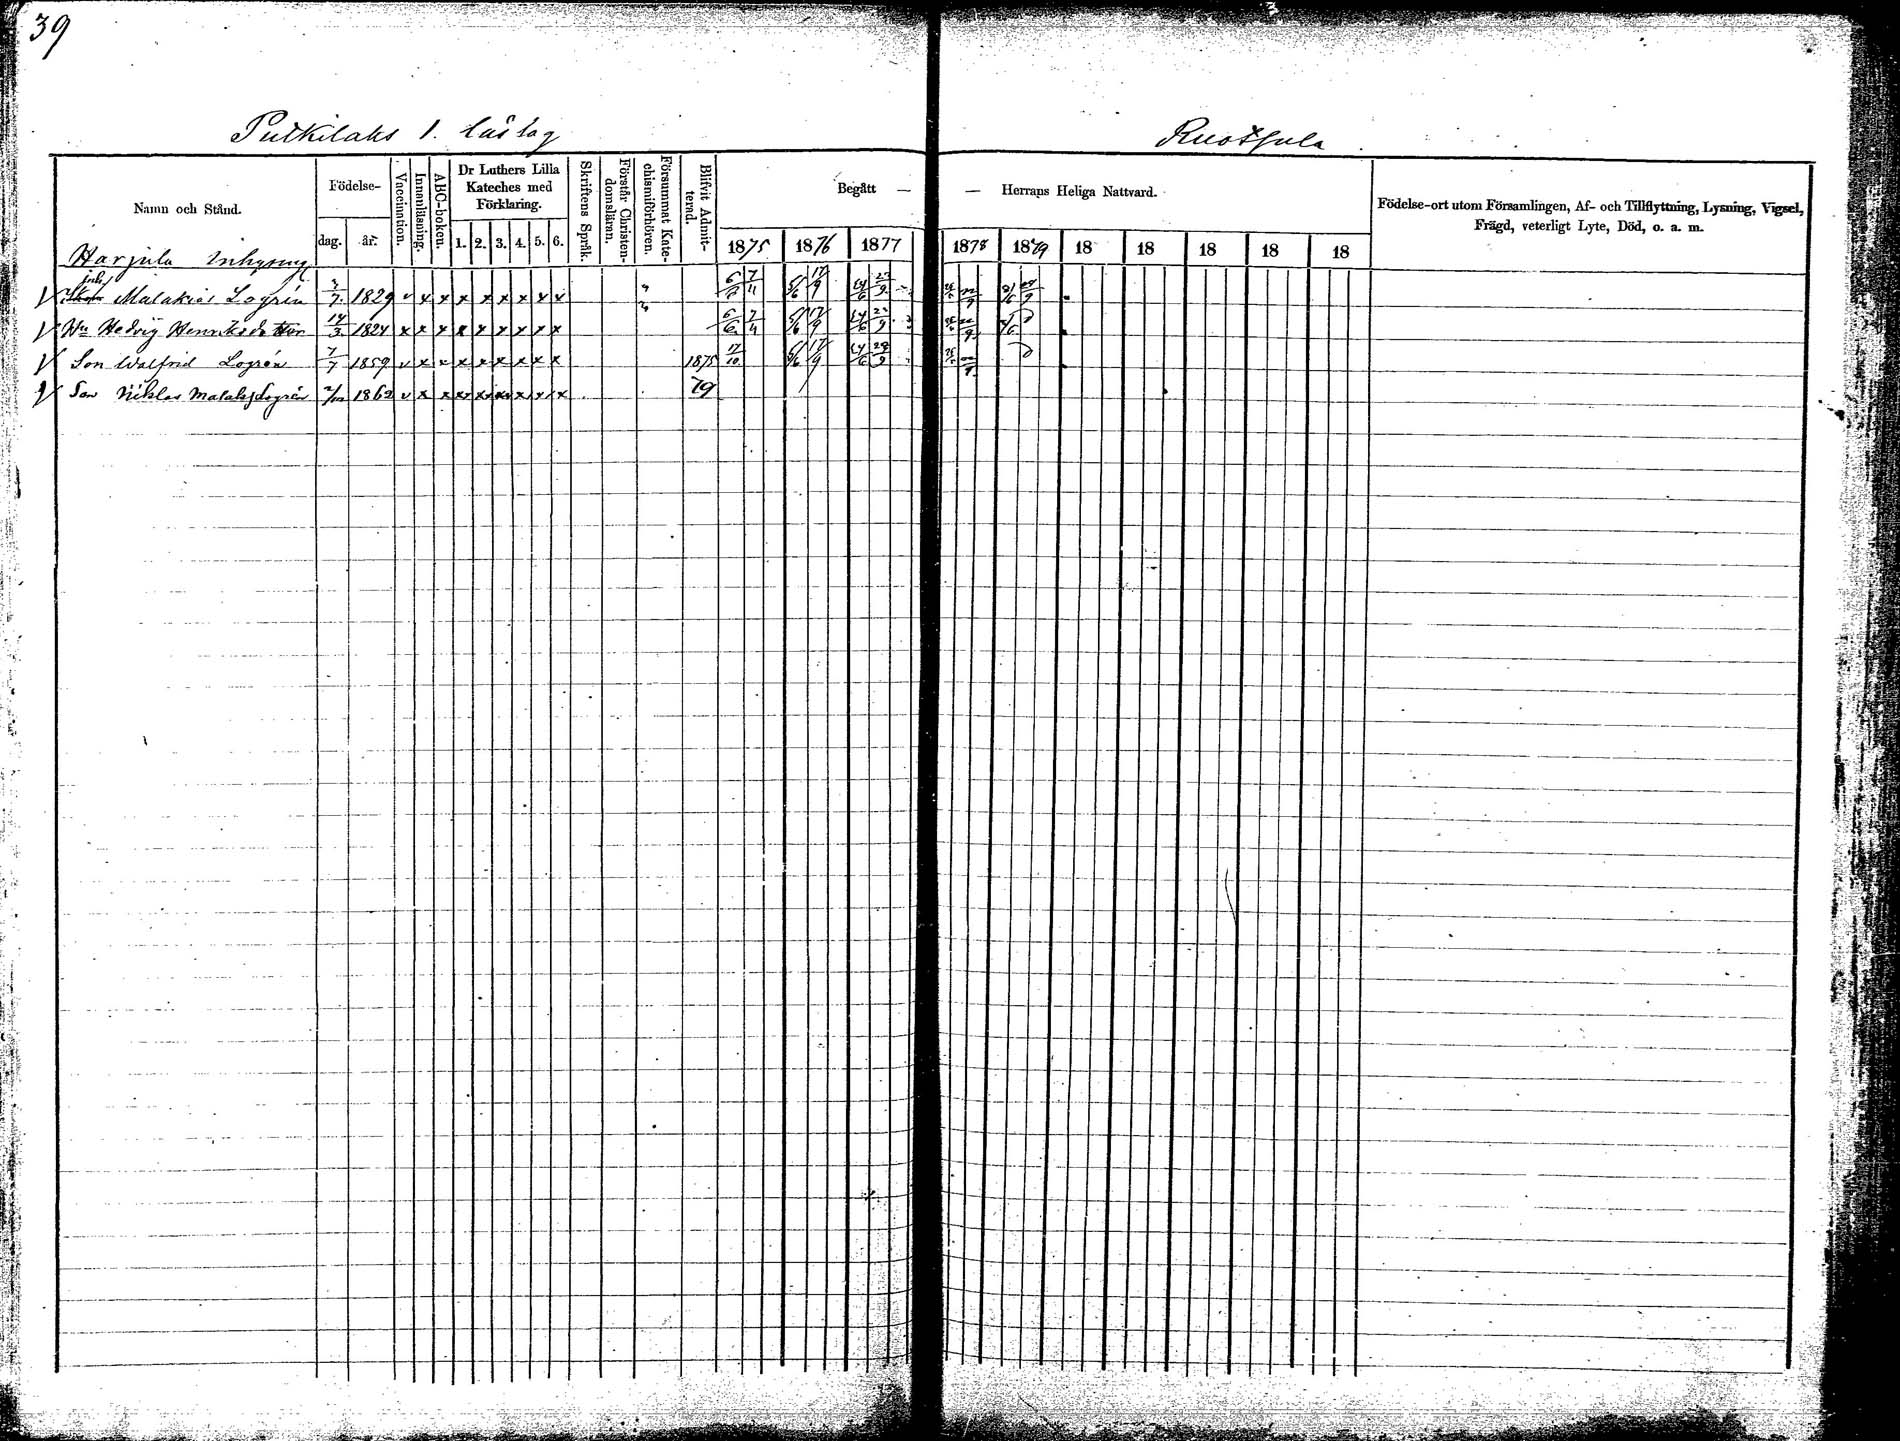 39
Putkilaks 1. lästag
Ruotsula
Namn och Stånd.
Födelse-
dag.
år.
Vaccination.
Innanläsning.
ABC-boken.
Dr Luthers Lilla Kateches med Förklaring.
1. 2. 3. 4. 5. 6.
Skriftens Språk.
Förstår Christen-domsläran.
Försummat Kate-chismiförhören.
Blifvit Admit-terad.
Begått — — Herrans Heliga Nattvard.
1875 1876 1877 1878 1879 18 18 18 18 18
Födelse-ort utom Församlingen, Af- och Tillflyttning, Lysning, Vigsel,
Frägd, veterligt Lyte, Död, o. a. m.
Harjula inhysing
Malakias Logrén 7 1829 v x x x x x x x x " 6/6 7/11 5/6 17/9 24/6 23/9
Hu Hedvig Henriksdotter 14/3 1824 x x x x x x x x x " 6/6 7/11 5/6 17/9 24/6 23/9
Son Walfrid Logrén 7/7 1859 v x x x x x x x x 1875 17/10 5/6 17/9 24/6 23/9
Son Niklas Logrén 1862 v x x x x x x x x 79